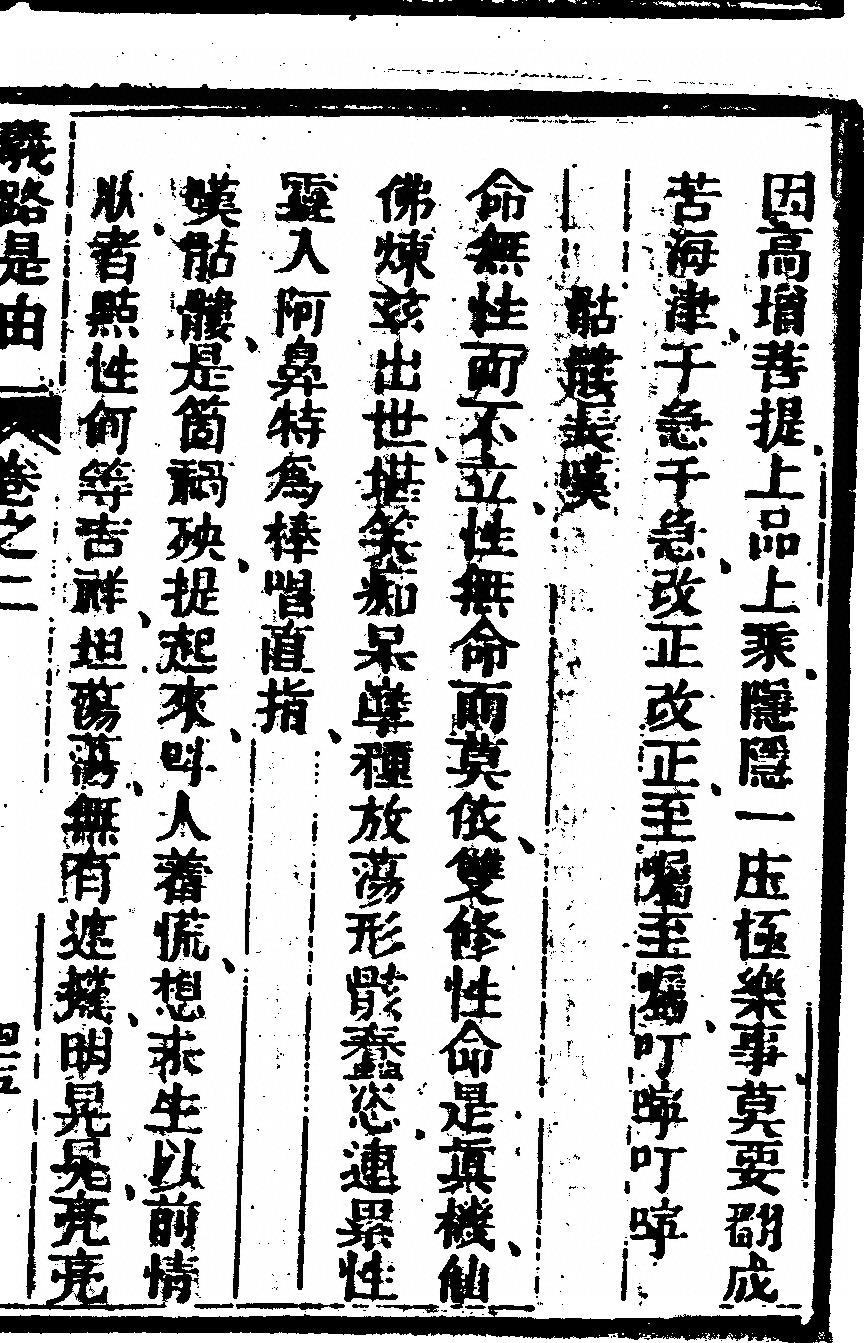 因高增菩提上品上乘隱隱一庄極樂事莫要翻成
苦海津千急千急改正改正至囑至囑叮嚀叮嚀
骷髏長嘆
命無性而不立性無命而莫依雙修性命是真機仙
佛煉茲出世堪笑痴呆孽種放蕩形骸蠢恣連累性
靈入阿鼻特為棒喝直指
嘆骷髏是箇禍殃提起來叫人著慌想未生以前情
狀者點性何等吉祥坦蕩蕩無有遮攔明晃晃亮亮
義路是由 卷之二 四十五